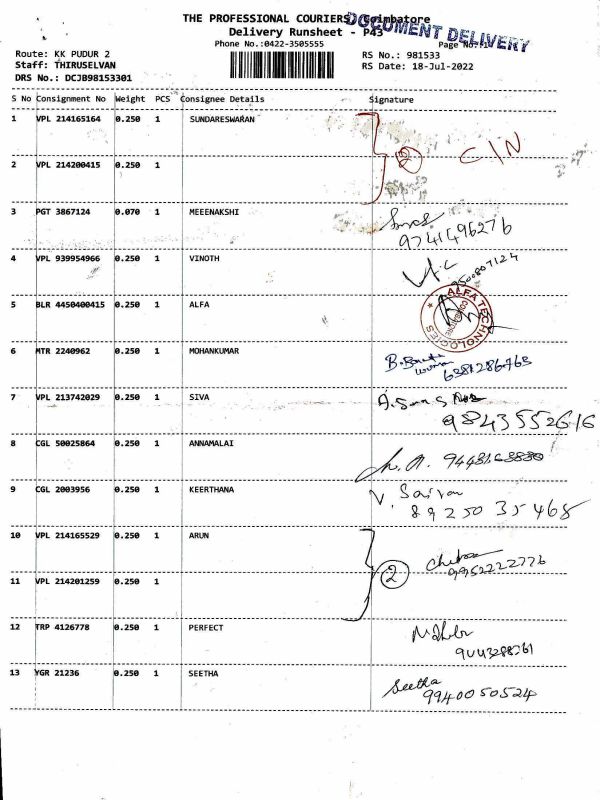 THE PROFESSIONAL COURIERS, Coimbatore
DOCUMENT DELIVERY
Delivery Runsheet - P43
Phone No.:0422-3505555
Page No.:1
Route: KK PUDUR 2
RS No.: 981533
Staff: THIRUSELVAN
RS Date: 18-Jul-2022
DRS No.: DCJB98153301
S No Consignment No Weight PCS Consignee Details Signature
1 VPL 214165164 0.250 1 SUNDARESWARAN
2 VPL 214200415 0.250 1
3 PGT 3867124 0.070 1 MEEENAKSHI
9741496276
4 VPL 939954966 0.250 1 VINOTH
5 BLR 4450400415 0.250 1 ALFA
ALFA TECHNOLOGIES
6 MTR 2240962 0.250 1 MOHANKUMAR
6381286763
7 VPL 213742029 0.250 1 SIVA
9843552616
8 CGL 50025864 0.250 1 ANNAMALAI
9 CGL 2003956 0.250 1 KEERTHANA
89250 35468
10 VPL 214165529 0.250 1 ARUN
9952222776
2
11 VPL 214201259 0.250 1
12 TRP 4126778 0.250 1 PERFECT
13 YGR 21236 0.250 1 SEETHA
Seetha
9940050524